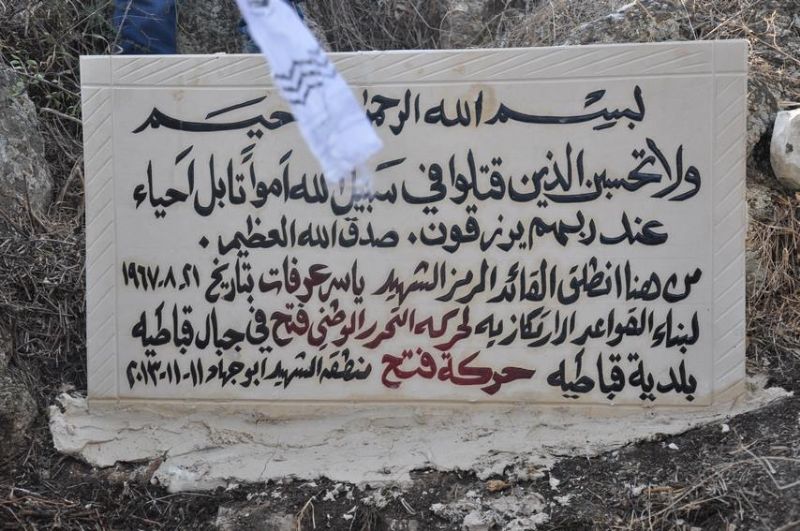 بسم الله الرحمن الرحيم
ولا تحسبن الذين قتلوا في سبيل الله أمواتا بل أحياء
عند ربهم يرزقون . صدق الله العظيم .
من هنا انطلق القائد الرمز الشهيد ياسر عرفات بتاريخ ٢١-٨-١٩٦٧
لبناء القواعد الارتكازيه لحركه التحرر الوطني فتح في جبال قباطيه
بلدية قباطيه حركة فتح منطقه الشهيد ابو جهاد ١١-١١-٢٠١٣